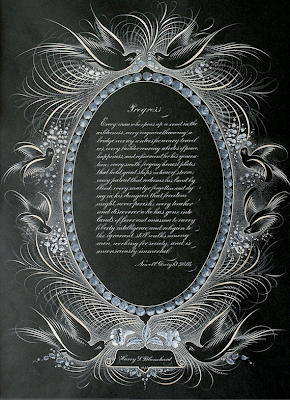 Progress
Every man who opens up a road in the
wilderness, every engineer throwing a
bridge over icy rivers for weary travel
ers, every builder rearing abodes of peace,
happiness, and refinement for his genera
tion; every smith forging honest plates
that hold great ships in time of storm;
every patriot that redeems his land by
blood; every martyr forgotten and dy
ing in his dungeon that freedom
might never perish; every teacher
and discoverer who has gone into
lands of fever and miasma to carry
liberty, intelligence and religion to
the ignorant, still walks among
men, working for society, and is
unconsciously immortal.
Newell Dwight Hillis
Harry S. Blanchard